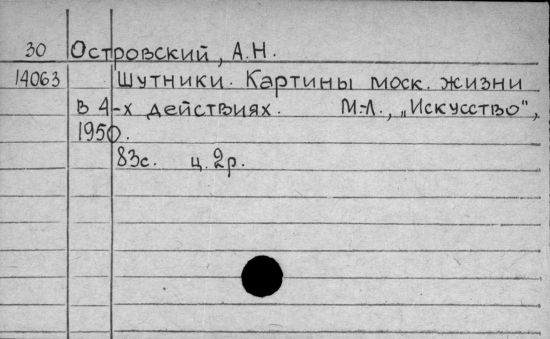 30 Островский, А.Н.
14063 Шутники. Картины моск. жизни
в 4-х действиях. М.-Л., „Искусство",
1950.
83с. ц. 2р.